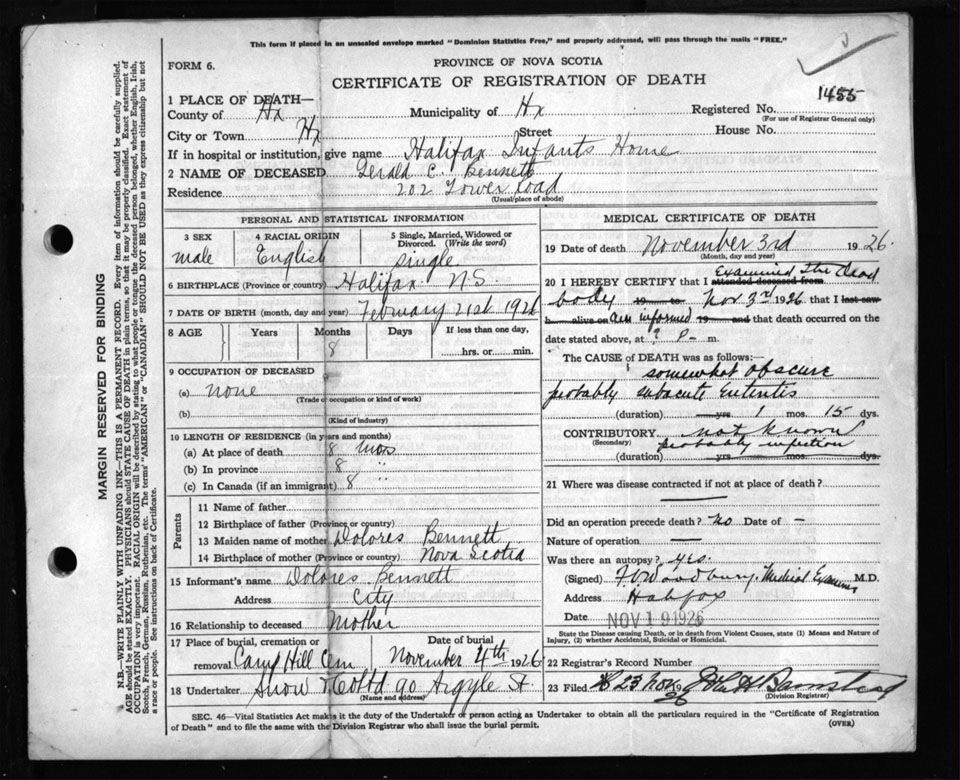 This form if placed in an unsealed envelope marked "Dominion Statistics Free," and properly addressed, will pass through the mails "FREE."
FORM 6.
PROVINCE OF NOVA SCOTIA
CERTIFICATE OF REGISTRATION OF DEATH
1455
1 PLACE OF DEATH—
County of Hx Municipality of Hx Registered No.
(For use of Registrar General only)
City or Town Hx Street House No.
If in hospital or institution, give name Halifax Infants Home
2 NAME OF DECEASED Gerald C. Bennett
Residence 202 Tower Road
(Usual place of abode)
PERSONAL AND STATISTICAL INFORMATION
3 SEX male
4 RACIAL ORIGIN English
5 Single, Married, Widowed or Divorced. (Write the word) single
6 BIRTHPLACE (Province or country) Halifax N.S.
7 DATE OF BIRTH (month, day and year) February 21st 1926
8 AGE Years Months Days If less than one day,
8 hrs. or min.
9 OCCUPATION OF DECEASED
(a) none
(Trade or occupation or kind of work)
(b)
(Kind of industry)
10 LENGTH OF RESIDENCE (in years and months)
(a) At place of death 8 mos
(b) In province 8 "
(c) In Canada (if an immigrant) 8 "
Parents
11 Name of father
12 Birthplace of father (Province or country)
13 Maiden name of mother Dolores Bennett
14 Birthplace of mother (Province or country) Nova Scotia
15 Informant's name Dolores Bennett
Address City
16 Relationship to deceased Mother
17 Place of burial, cremation or removal Camp Hill Cem Date of burial November 4th 1926
18 Undertaker Snow & Co Ltd 90 Argyle St
(Name and address)
MEDICAL CERTIFICATE OF DEATH
19 Date of death November 3rd 1926.
(Month, day and year)
20 I HEREBY CERTIFY that I attended deceased from Examined the dead
body 19 to Nov 3rd 1926 that I last saw
h alive on am informed 19 and that death occurred on
date stated above, at ? P— m.
The CAUSE of DEATH was as follows:—
somewhat obscure
probably subacute Enteritis
(duration) yrs 1 mos. 15 dys.
CONTRIBUTORY not known
(Secondary) probably infection
(duration) yrs. mos. dys.
21 Where was disease contracted if not at place of death?
Did an operation precede death? No Date of —
Nature of operation —
Was there an autopsy? yes.
(Signed) F. Woodbury Medical Examiner M.D.
Address Halifax
Date NOV 19 1926
State the Disease causing Death, or in death from Violent Causes, state (1) Means and Nature of Injury, (2) whether Accidental, Suicidal or Homicidal.
22 Registrar's Record Number
23 Filed 23 Nov 1926
(Division Registrar)
SEC. 46—Vital Statistics Act makes it the duty of the Undertaker or person acting as Undertaker to obtain all the particulars required in the "Certificate of Registration
of Death" and to file the same with the Division Registrar who shall issue the burial permit.
(OVER)
MARGIN RESERVED FOR BINDING
N.B.—WRITE PLAINLY WITH UNFADING INK—THIS IS A PERMANENT RECORD. Every item of information should be carefully supplied.
AGE should be stated EXACTLY. PHYSICIANS should STATE CAUSE OF DEATH in plain terms, so that it may be properly classified. Exact statement of
OCCUPATION is very important. RACIAL ORIGIN will be described by stating to what people or tongue the deceased person belonged, whether English, Irish,
Scotch, French, German, Russian, Ruthenian, etc. The terms "AMERICAN" or "CANADIAN" SHOULD NOT BE USED as they express citizenship but not
a race or people. See instructions on back of Certificate.